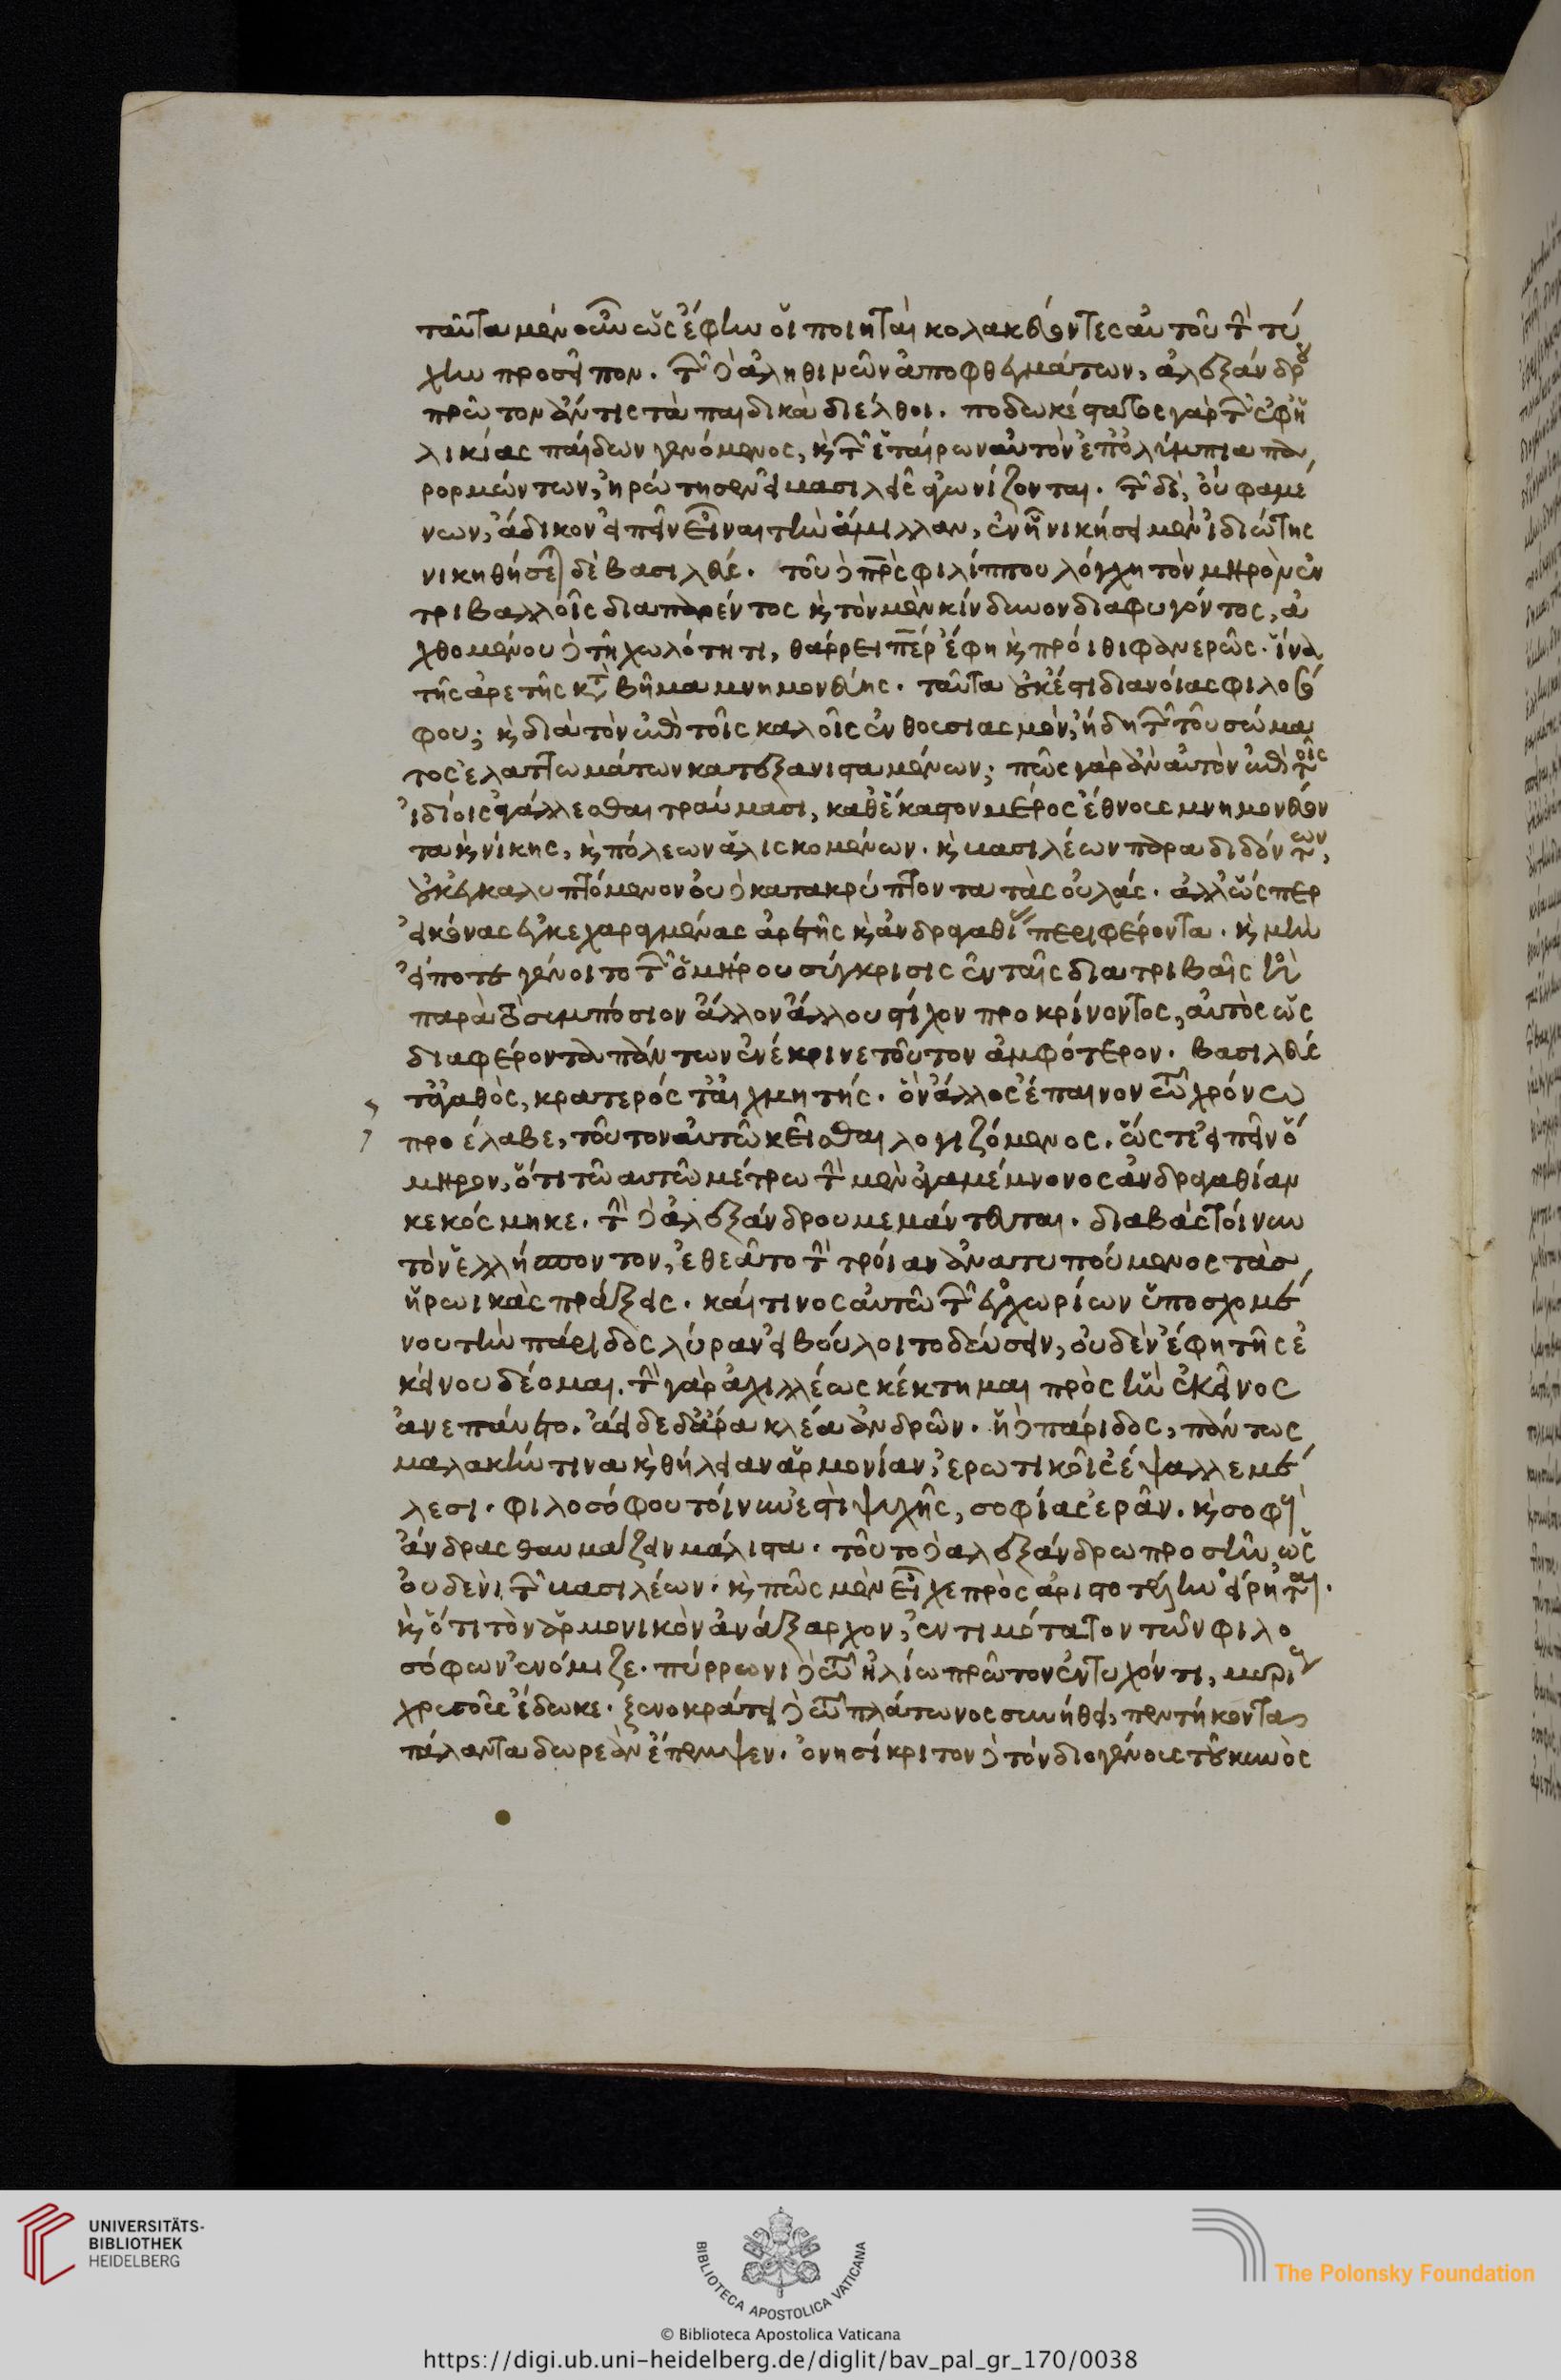 ταῦτα μὲν οὖν ὡς ἔφην οἱ ποιηταὶ κολακεύοντες αὐτοῦ τὴν τύ
χην προσεῖπον. τῶν δὲ ἀληθινῶν ἀποφθεγμάτων, ἀλεξάνδρου
πρῶτον ἄν τις τὰ παιδικὰ διέλθοι. ποδωκέστατος γὰρ τῶν ἐφη
λικίας παίδων γενόμενος, καὶ τῶν ἑταίρων αὐτὸν ἐπ' ὀλύμπια πα
ρορμώντων, ἠρώτησεν εἰ βασιλεῖς ἀγωνίζονται. τῶν δὲ, οὐ φαμέ
νων, ἄδικον εἰπεῖν εἶναι τὴν ἅμιλλαν, ἐν ᾗ νικήσει μὲν ἰδιώτης
νικηθήσεται δὲ βασιλεύς. τοῦ δὲ πατρὸς φιλίππου λόγχῃ τὸν μηρὸν ἐν
τριβαλλοῖς διαπαρέντος καὶ τὸν μὲν κίνδυνον διαφυγόντος, ἀ
χθομένου δὲ τῇ χωλότητι, θάρρει πάτερ ἔφη καὶ πρόιθι φανερῶς. ἵνα
τῆς ἀρετῆς κατὰ βῆμα μνημονεύῃς. ταῦτα οὐκ ἔστι διανοίας φιλοσό
φου; καὶ διὰ τὸν ἐπὶ τοῖς καλοῖς ἐνθουσιασμὸν, ἤδη τῶν τοῦ σώμα
τος ἐλαττωμάτων κατεξανισταμένων; πῶς γὰρ ἂν αὐτὸν ἐπὶ τοῖς
ἰδίοις ἀγάλλεσθαι τραύμασι, καθ' ἕκαστον μέρος ἔθνους μνημονεύον
τα καὶ νίκης, καὶ πόλεων ἁλισκομένων. καὶ βασιλέων παραδιδόντων,
οὐκ ἐγκαλυπτόμενον οὐδὲ κατακρύπτοντα τὰς οὐλάς. ἀλλ' ὥσπερ
εἰκόνας ἐγκεχαραγμένας ἀρετῆς καὶ ἀνδραγαθίας περιφέροντα. καὶ μὴν
εἴποτε γένοιτο τῶν ὁμήρου σύγκρισις ἐν ταῖς διατριβαῖς ἢ
παρὰ τὸ συμπόσιον ἄλλον ἄλλου στίχον προκρίνοντος, αὐτὸς ὡς
διαφέροντα πάντων ἐνέκρινε τοῦτον ἀμφότερον. βασιλεύς
τ' ἀγαθὸς, κρατερός τ' αἰχμητής. ὃν ἄλλος ἔπαινον τῷ χρόνῳ
προέλαβε, τοῦτον αὐτῷ κεῖσθαι λογιζόμενος. ὥστε εἰπεῖν ὅ
μηρον, ὅτι τῷ αὐτῷ μέτρῳ τὴν μὲν ἀγαμέμνονος ἀνδραγαθίαν
κεκόσμηκε. τὴν δὲ ἀλεξάνδρου μεμάντευται. διαβὰς τοίνυν
τὸν ἑλλήσποντον, ἐθεᾶτο τὴν τροίαν ἀνατυπούμενος τὰς
ἡρωικὰς πράξεις. καί τινος αὐτῷ τῶν ἐγχωρίων ὑποσχομέ
νου τὴν πάριδος λύραν εἰ βούλοιτο δώσειν, οὐδὲν ἔφη τῆς ἐ
κείνου δέομαι. τὴν γὰρ ἀχιλλέως κέκτημαι πρὸς ἣν ἐκεῖνος
ἀνεπαύετο. ἄειδε δ' ἄρα κλέα ἀνδρῶν. ἡ δὲ πάριδος, πάντως
μαλακήν τινα καὶ θήλειαν ἁρμονίαν, ἐρωτικοῖς ἔψαλλε μέ
λεσι. φιλοσόφου τοίνυν ἐστὶ ψυχῆς, σοφίας ἐρᾶν. καὶ σοφοὺς
ἄνδρας θαυμάζειν μάλιστα. τοῦτο δὲ ἀλεξάνδρῳ προσῆν, ὡς
οὐδενὶ τῶν βασιλέων. καὶ πῶς μὲν εἶχε πρὸς ἀριστοτέλην εἴρηται.
καὶ ὅτι τὸν ἁρμονικὸν ἀνάξαρχον, ἐντιμότατον τῶν φιλο
σόφων ἐνόμιζε. πύρρωνι δὲ τῷ ἠλίῳ πρῶτον ἐντυχόντι, μυρίους
χρυσοῦς ἔδωκε. ξενοκράτει δὲ τῷ πλάτωνος συνήθει, πεντήκοντα
τάλαντα δωρεὰν ἔπεμψεν. ὀνησίκριτον δὲ τὸν διογένους τοῦ κυνὸς
UNIVERSITÄTS-
BIBLIOTHEK
HEIDELBERG
BIBLIOTECA APOSTOLICA VATICANA
The Polonsky Foundation
© Biblioteca Apostolica Vaticana
https://digi.ub.uni-heidelberg.de/diglit/bav_pal_gr_170/0038